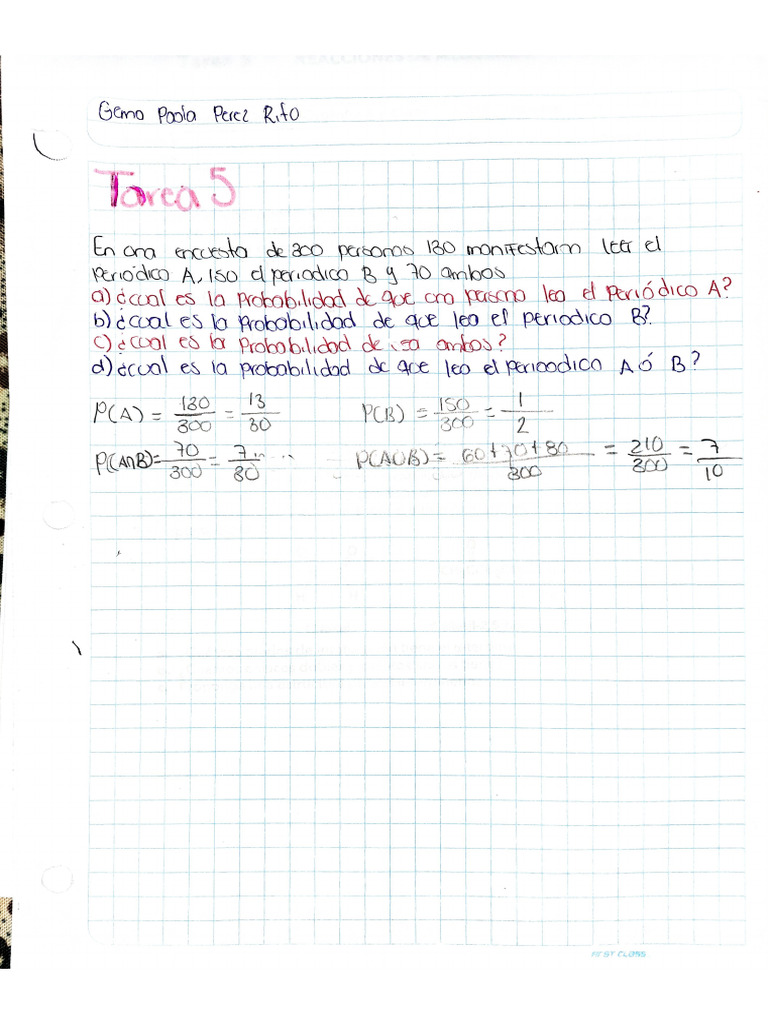 Gema Paola Perez Rito
Tarea 5
En una encuesta de 300 personas 130 manifestarn leer el
periódico A, 150 el periodico B y 70 ambos
a) ¿cual es la probabilidad de que una persona lea el periódico A?
b) ¿cual es la probabilidad de que lea el periodico B?
c) ¿cual es la probabilidad de ambos?
d) ¿cual es la probabilidad de que lea el perioodico A ó B?
P(A) = 130/300 = 13/30 P(B) = 150/300 = 1/2
P(A∩B) = 70/300 = 7/30 P(A∪B) = 60+70+80/300 = 210/300 = 7/10
FIRST CLASS